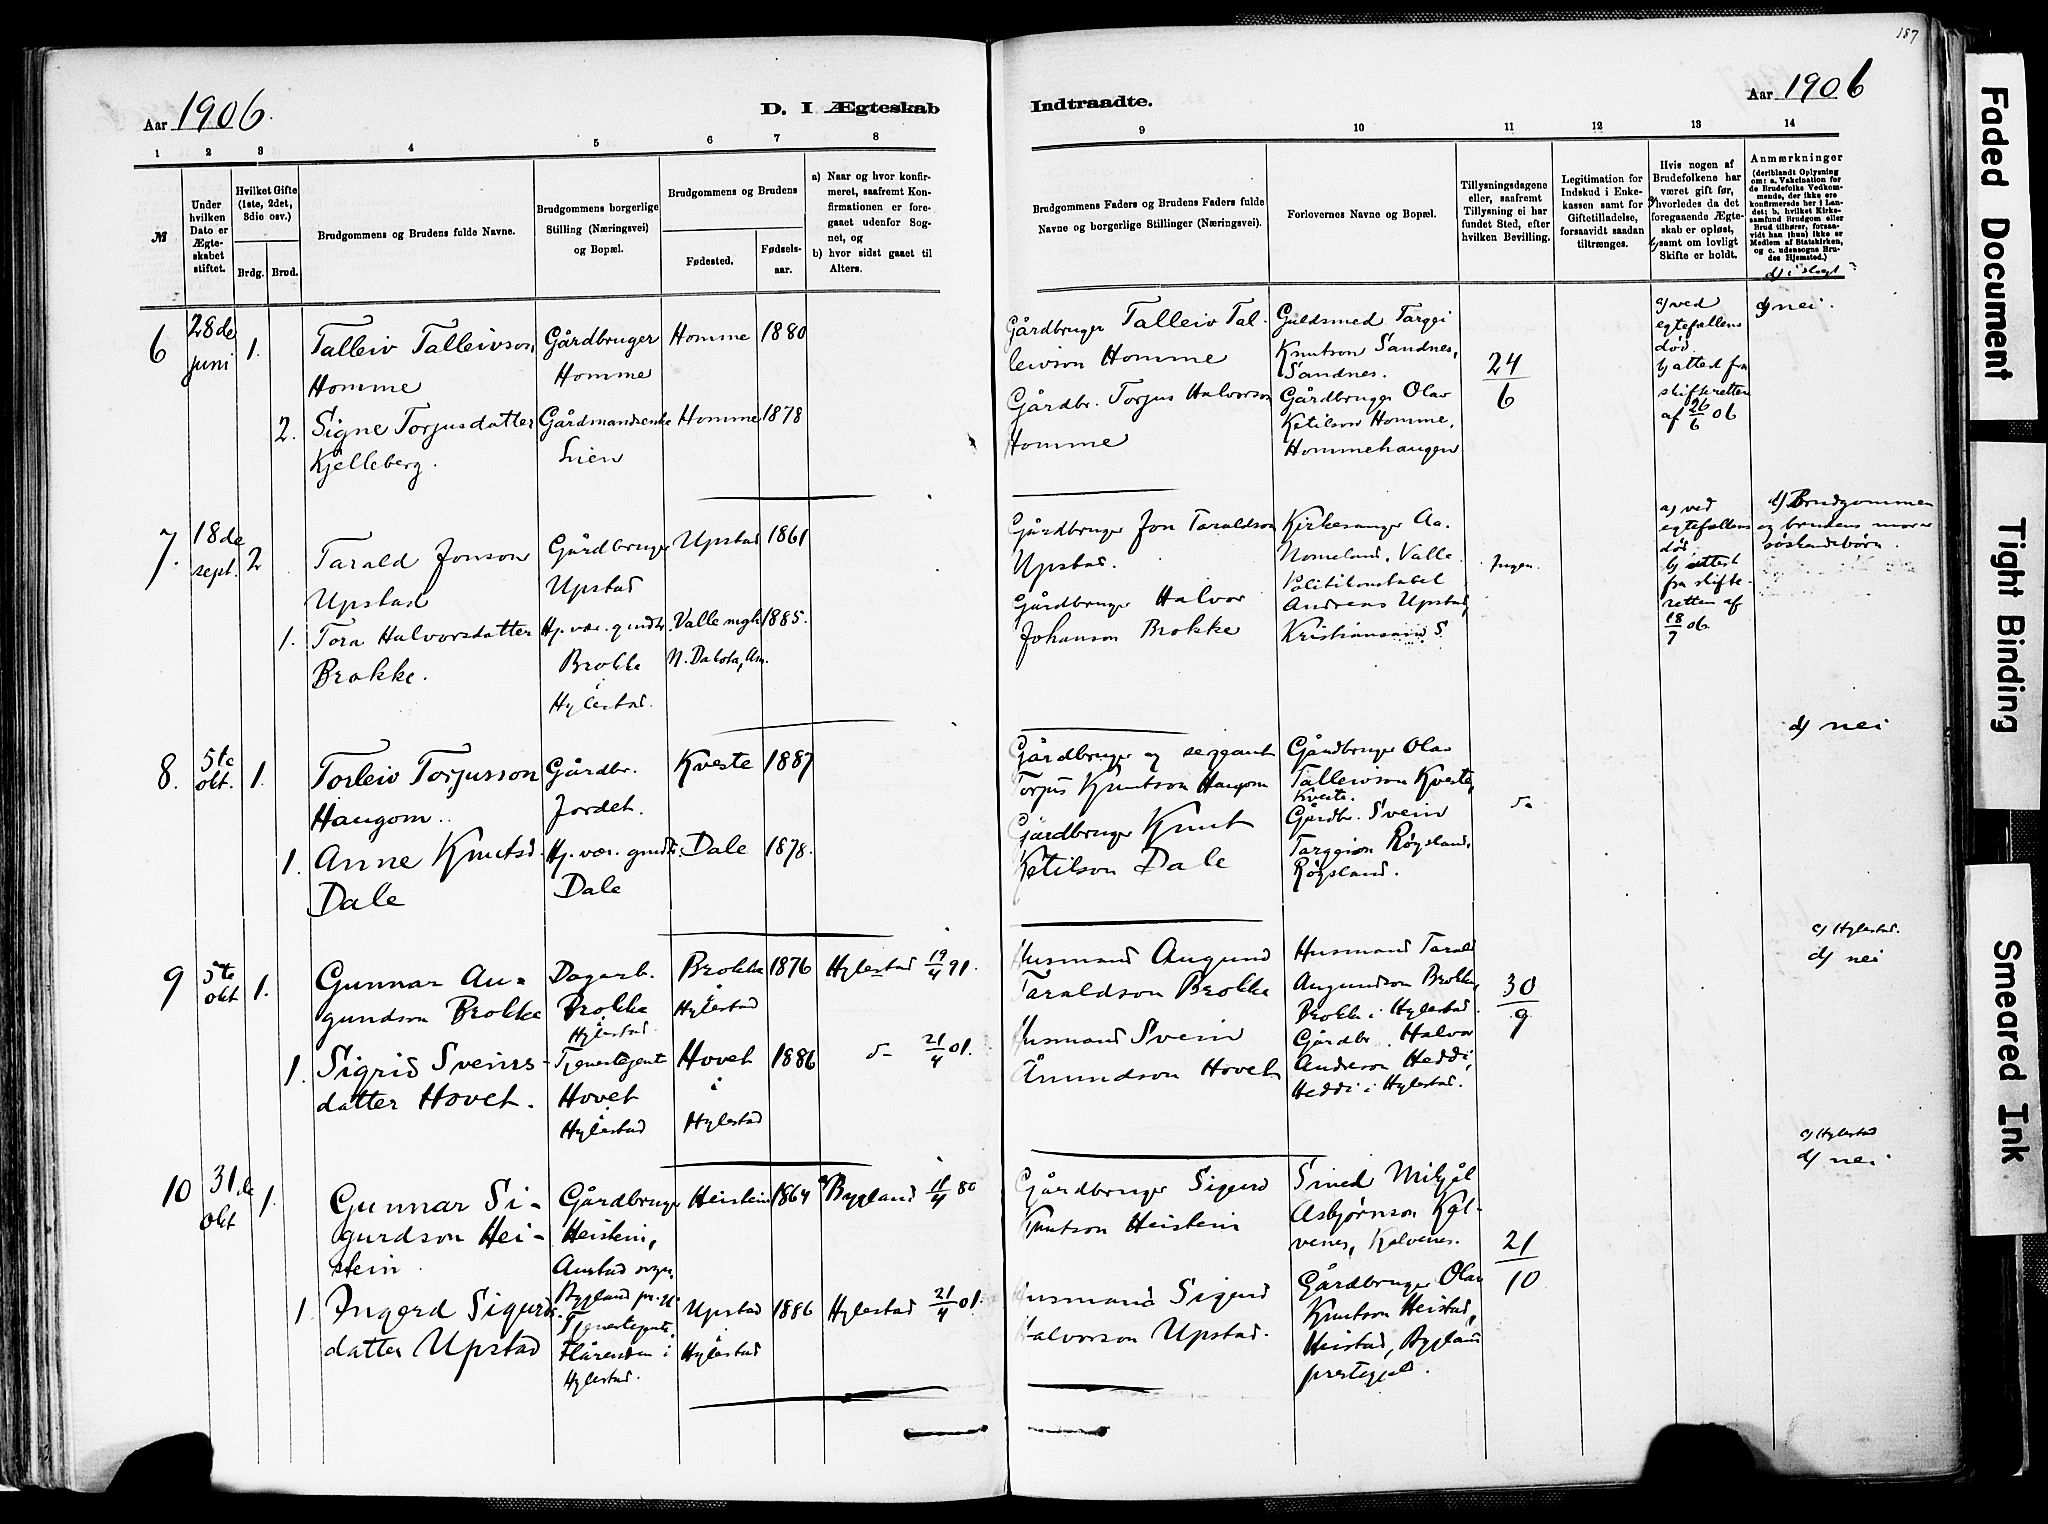 187
Aar 1906.
D. I Ægteskab
Indtraadte.
Aar 1906
1 2 3 4 5 6 7 8
9 10 11 12 13 14
№
Under hvilken Dato er Ægteskabet stiftet.
Hvilket Gifte (1ste, 2det, 3die osv.)
Brdg. Brud.
Brudgommens og Brudens fulde Navne.
Brudgommens borgerlige Stilling (Næringsvei) og Bopæl.
Brudgommens og Brudens
Fødested.
Fødselsaar.
a) Naar og hvor konfirmeret, saafremt Konfirmationen er foregaaet udenfor Sognet, og
b) hvor sidst gaaet til Alters.
Brudgommens Faders og Brudens Faders fulde Navne og borgerlige Stillinger (Næringsvei).
Forlovernes Navne og Bopæl.
Tillysningsdagene eller, saafremt Tillysning ei har fundet Sted, efter hvilken Bevilling.
Legitimation for Indskud i Enkekassen samt for Giftetilladelse, forsaavidt saadan tiltrænges.
Hvis nogen af Brudefolkene har været gift før, a) hvorledes da det foregaaende Ægteskab er opløst, b) samt om lovligt Skifte er holdt.
Anmærkninger (deriblandt Oplysning om: a. Vakcination for de Brudefolk Vedkommende, der ikke ere konfirmerede her i Landet; b. hvilket Kirkesamfund Brudgom eller Brud tilhører, forsaavidt han (hun) ikke er Medlem af Statskirken, og c. udensogns Brudes Hjemsted.)
d) i slegt?
6
28de
juni
1.
Talleiv Talleivson
Homme
Gårdbruger
Homme
Homme
1880
2.
Signe Torjusdatter
Kjelleberg.
Gårdmandsenke
Lien
Homme
1878
Gårdbruger Talleiv Tal-
leivson Homme
Gårdbr. Torjus Halvorson
Homme
Guldsmed Targei
Knutson Sandnes,
Sandnes.
Gårdbruger Olav
Ketilson Homme,
Hommehaugen
24
6
a) ved
egtefellens
død.
b) attest fra
skifteretten
af 26/6 06
d) nei.
7.
18de
sept.
2
Tarald Jonson
Upstad
Gårdbruger
Upstad
Upstad
1861
1.
Tora Halvorsdatter
Brokke.
Hj. vær. gmdtr.
Brokke
i
Hylestad.
Valle mgh.
N. Dakota, Am.
1885.
Gårdbruger Jon Taraldson
Upstad.
Gårdbruger Halvor
Johanson Brokke
Kirkesanger Aa.
Nomeland, Valle.
Politikonstabel
Andreas Upstad,
Kristiansand S.
Ingen.
a) ved
egtefellens
død.
b) attest
fra skifte-
retten af
18/7 06.
d) Brudgommen
og brudens mor er
søskendebørn.
8.
5te
okt.
1.
Torleiv Torjusson
Haugom.
Gårdbr.
Jordet.
Kveste
1887
1.
Anne Knutsd.
Dale
Hj. vær. gmdtr.
Dale
Dale
1878.
Gårdbruger og sergeant
Torjus Knutson Haugom
Gårdbruger Knut
Ketilson Dale
Gårdbruger Olav
Talleivson Kveste,
Kveste.
Gårdbr. Svein
Targeison Røysland,
Røysland.
d) nei
9
5te
okt
1.
Gunnar Au-
gundson Brokke
Dagarb.
Brokke
i
Hylestad.
Brokke
i
Hylestad
1876
Hylestad 19/4 91.
1.
Sigrid Sveins-
datter Hovet.
Tjenestegente
Hovet
i
Hylestad
Hovet
i
Hylestad
1886
21/4 01.
Husmand Augund
Taraldson Brokke
Husmand Svein
Ånundson Hovet
Husmand Tarald
Augundson Brokke,
Brokke i Hylestad.
Gårdbr. Halvor
Andreson Heddi,
Heddi i Hylestad.
30
9
c) Hylestad.
d) nei
10
31de
okt
1.
Gunnar Si-
gurdson Hei-
stein
Gårdbruger
Heistein,
Austad sogn,
Bygland pr.gj.
Heistein
1864
a) Bygland 18/4 80
1.
Ingerd Sigurds-
datter Upstad
Tjenestegente,
Flårenden i
Hylestad.
Upstad
i
Hylestad
1886
Hylestad 21/4 01.
Gårdbruger Sigurd
Knutson Heistein
Husmand Sigurd
Halvorson Upstad.
Smed Mikjål
Asbjørnson Kål-
venes, Kalvenes.
Gårdbruger Olav
Knutson Heistad,
Heistad, Bygland
prestegjeld.
21
10
c) Hylestad
d) nei
Faded Document
Tight Binding
Smeared Ink